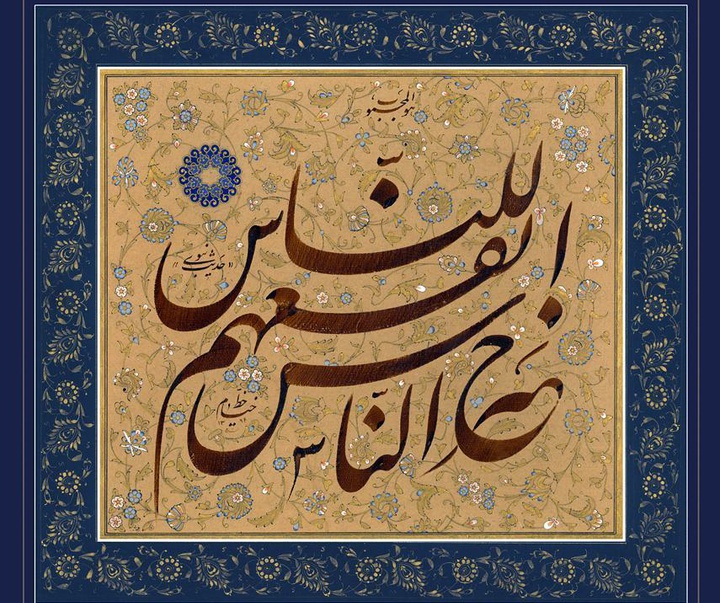 هو المحبوب
خیر الناس
انفعهم
للناس
«حدیث نبوی»
خط خیام